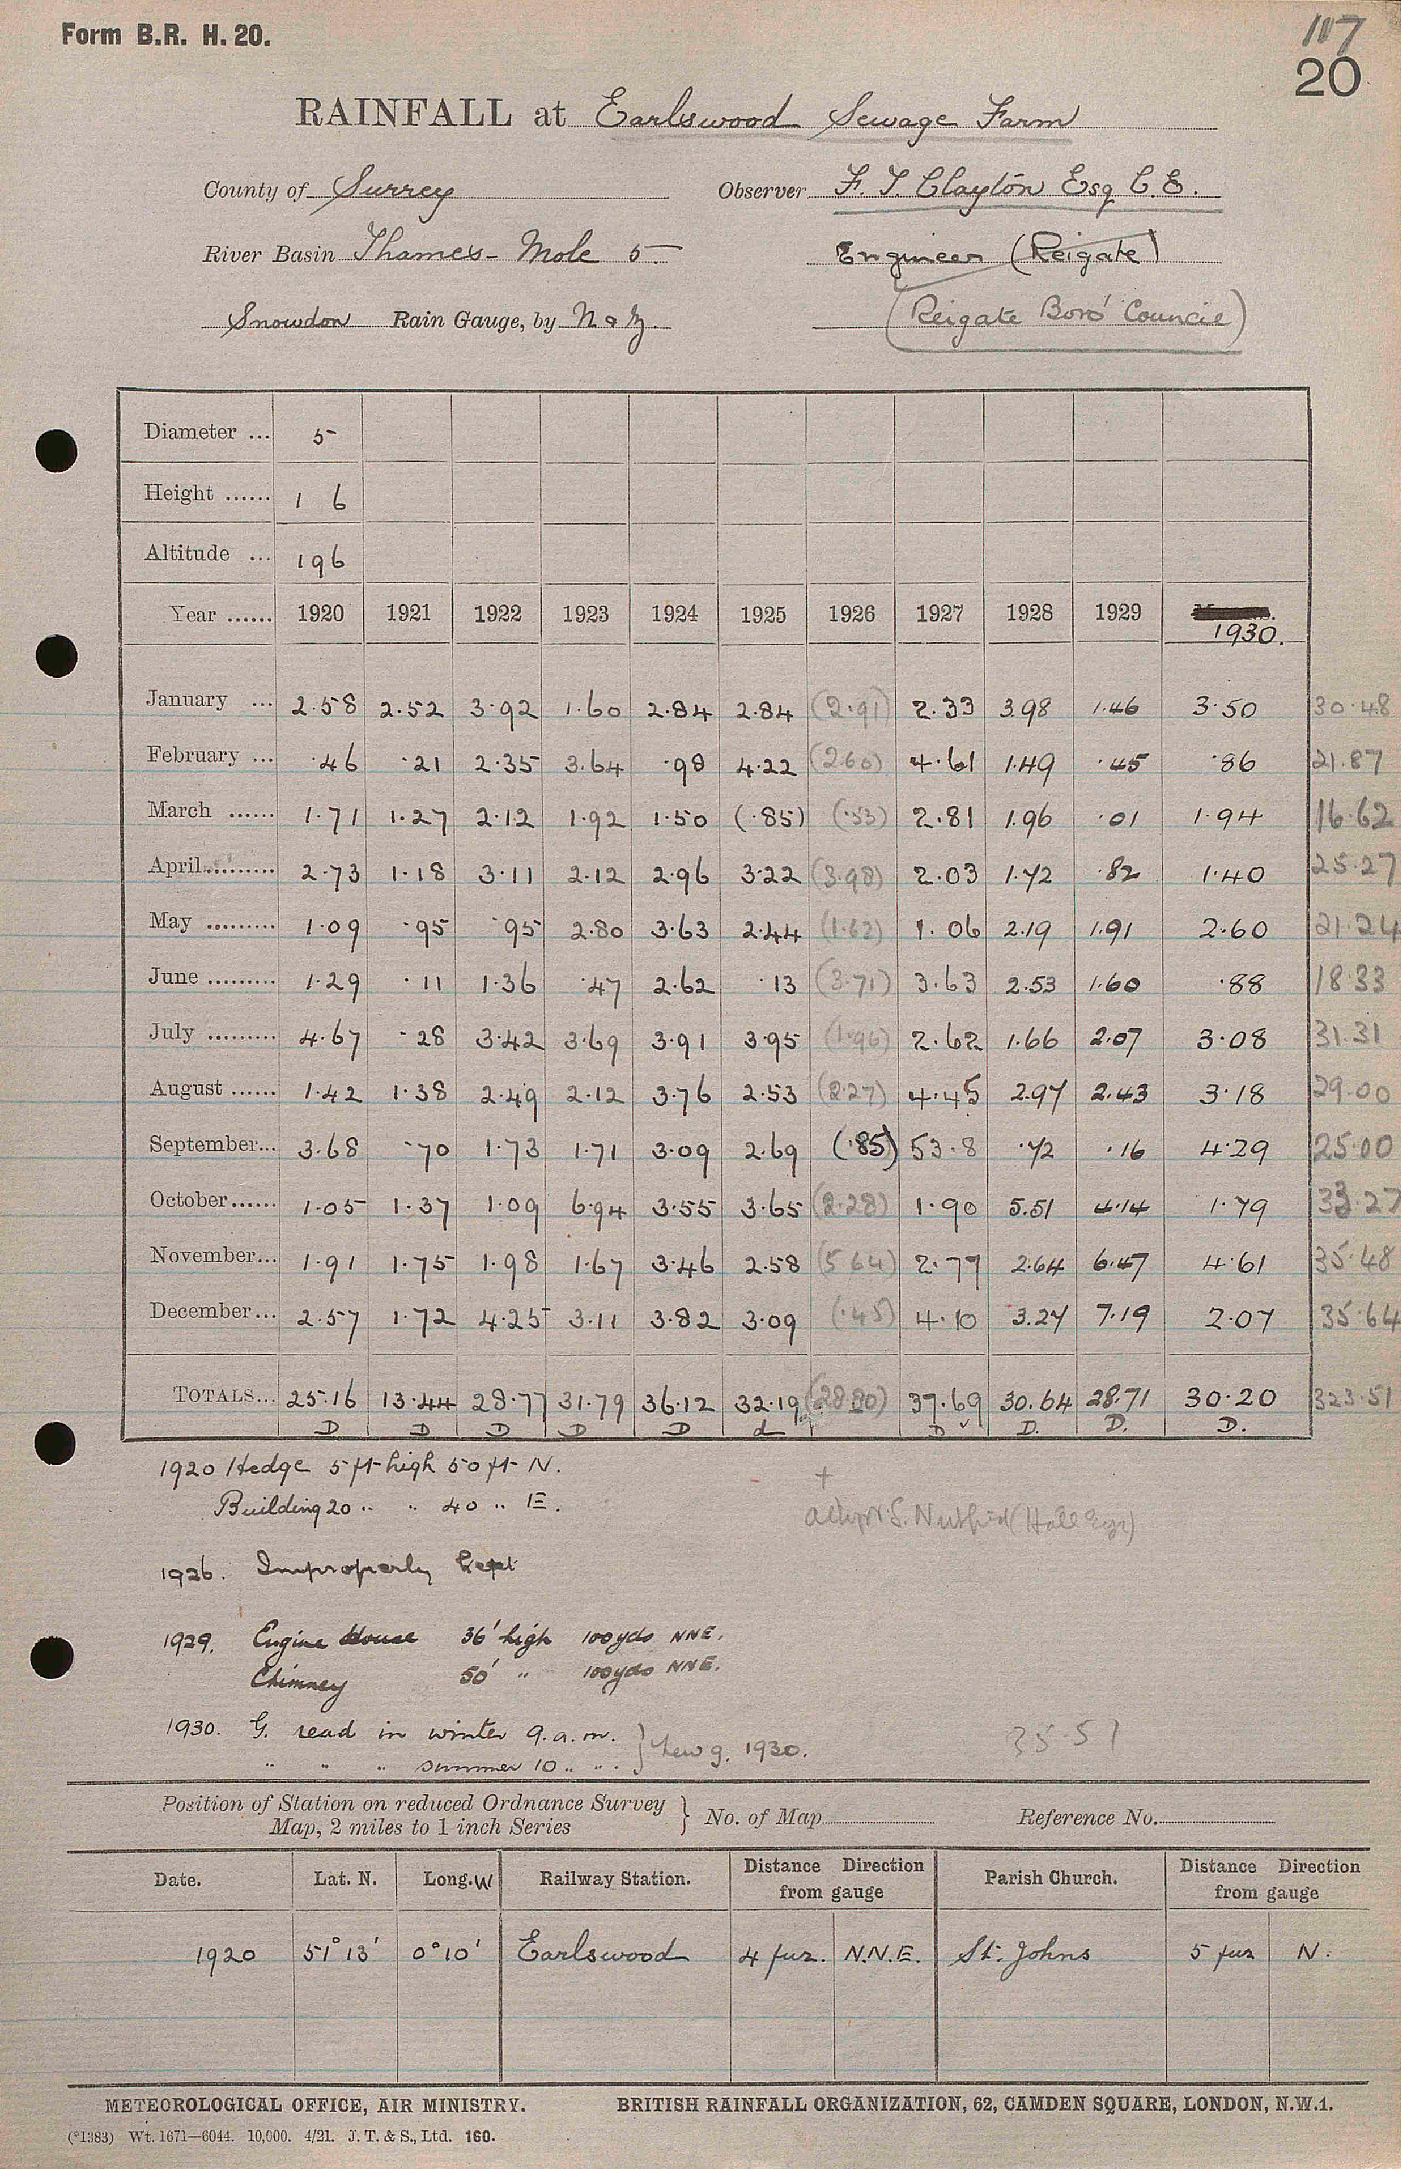 Form B.R. H. 20.
117
20
RAINFALL at Earlswood Sewage Farm
County of Surrey Observer F. T. Clayton Esq C.E.
River Basin Thames - Mole 5 Engineer (Reigate)
Snowdon Rain Gauge, by N & Z. (Reigate Boro' Council)
Diameter ... 5
Height ...... 1 6
Altitude ... 196
Year ...... 1920 1921 1922 1923 1924 1925 1926 1927 1928 1929 1930.
January ... 2.58 2.52 3.92 1.60 2.84 2.84 (2.91) 2.33 3.98 1.46 3.50 30.48
February ... .46 .21 2.35 3.64 .98 4.22 (2.60) 4.61 1.49 .45 .86 21.87
March ...... 1.71 1.27 2.12 1.92 1.50 (.85) (.53) 2.81 1.96 .01 1.94 16.62
April......... 2.73 1.18 3.11 2.12 2.96 3.22 (3.98) 2.03 1.72 .82 1.40 25.27
May ......... 1.09 .95 .95 2.80 3.63 2.44 (1.62) 1.06 2.19 1.91 2.60 21.24
June ......... 1.29 .11 1.36 .47 2.62 .13 (3.71) 3.63 2.53 1.60 .88 18.33
July ......... 4.67 .28 3.42 3.69 3.91 3.95 (1.96) 2.62 1.66 2.07 3.08 31.31
August ...... 1.42 1.38 2.49 2.12 3.76 2.53 (2.27) 4.45 2.97 2.43 3.18 29.00
September... 3.68 .70 1.73 1.71 3.09 2.69 (.85) 53.8 .72 .16 4.29 25.00
October...... 1.05 1.37 1.09 6.94 3.55 3.65 (2.28) 1.90 5.51 4.14 1.79 33.27
November... 1.91 1.75 1.98 1.67 3.46 2.58 (5.64) 2.77 2.64 6.47 4.61 35.48
December... 2.57 1.72 4.25 3.11 3.82 3.09 (.45) 4.10 3.27 7.19 2.07 35.64
TOTALS... 25.16 13.44 28.77 31.79 36.12 32.19 (28.80) 37.69 30.64 28.71 30.20 323.51
D D D D D d D v D. D. D.
1920 Hedge 5 ft high 50 ft N.
Building 20 " " 40 " E.
+
S. Nutfield (Hall
1926. Improperly kept
1929. Engine House 36' high 100 yds NNE.
Chimney 50' " 100 yds NNE.
1930. G. read in winter 9.a.m. } New g. 1930.
" " " summer 10 " " .
35.51
Position of Station on reduced Ordnance Survey Map, 2 miles to 1 inch Series } No. of Map Reference No.
Date. Lat. N. Long. W Railway Station. Distance Direction from gauge Parish Church. Distance Direction from gauge
1920 51° 13' 0° 10' Earlswood 4 fur. N.N.E. St. Johns 5 fur N.
METEOROLOGICAL OFFICE, AIR MINISTRY. BRITISH RAINFALL ORGANIZATION, 62, CAMDEN SQUARE, LONDON, N.W.1.
(*1383) Wt. 1671—6044. 10,000. 4/21. J. T. & S., Ltd. 160.